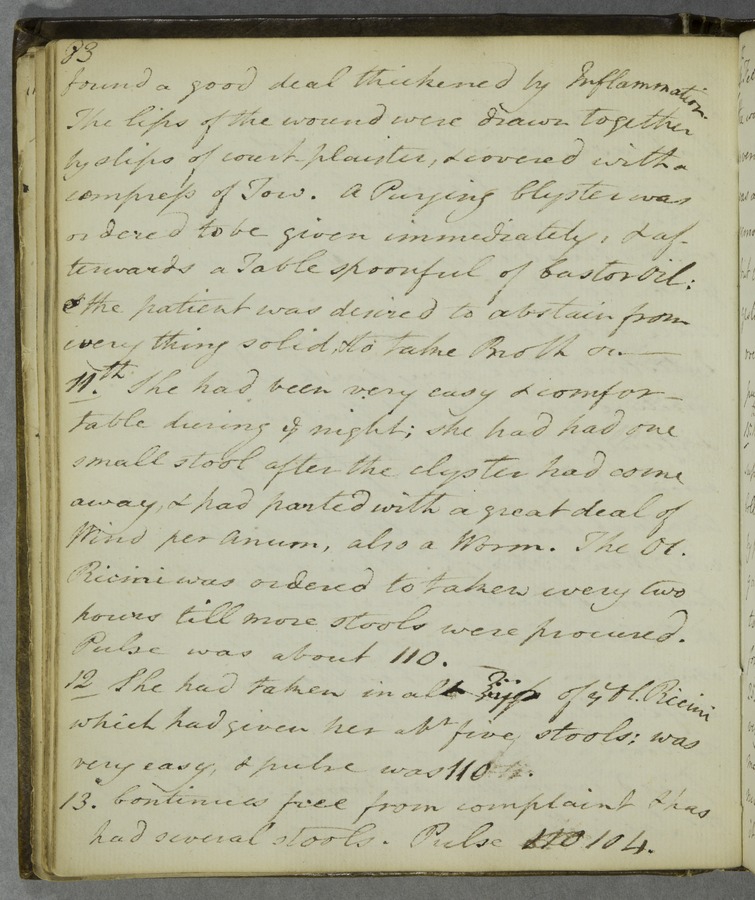 83
found a good deal thickened by Inflammation
The lips of the wound were drawn together
by slips of court plaister, & covered with a
compress of Tow. A Purging Clyster was
ordered to be given immediately, & af-
terwards a Table spoonful of Castor Oil:
& the patient was desired to abstain from
every thing solid, & to take Broth
11.th She had been very easy & comfor-
table during ye night; she had had one
small stool after the clyster had come
away, & had parted with a great deal of
Wind per Anum, also a Worm. The Ol.
Ricini was ordered to taken every two
hours till more stools were procured.
Pulse was about 110.
12 She had taken in all of ye Ol. Ricini
which had given her abt five stools; was
very easy, & pulse was 110
13. Continues free from complaint & has
had several stools. Pulse 110 104.